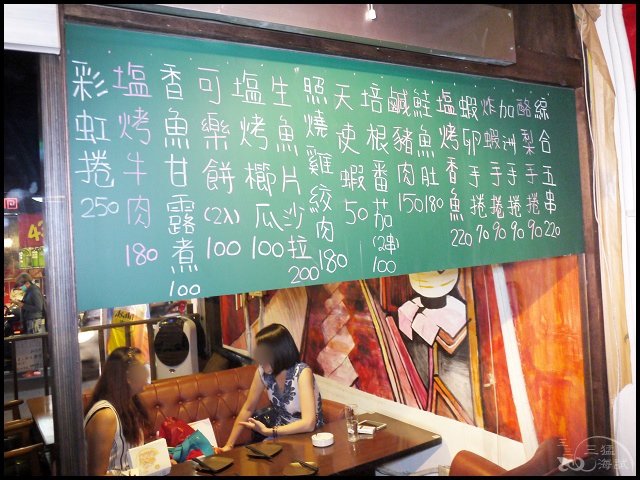 彩虹捲 250
塩烤牛肉 180
香魚甘露煮 100
可樂餅(2入) 100
塩烤櫛瓜 100
生魚片沙拉 200
照燒雞絞肉 180
天使蝦 50
培根番茄(2串) 100
鹹豬肉 150
鮭魚肚 180
塩烤香魚 220
蝦卵手捲 90
炸蝦手捲 90
加洲手捲 90
酪梨手捲 90
綜合五串 220
三猛
海賊